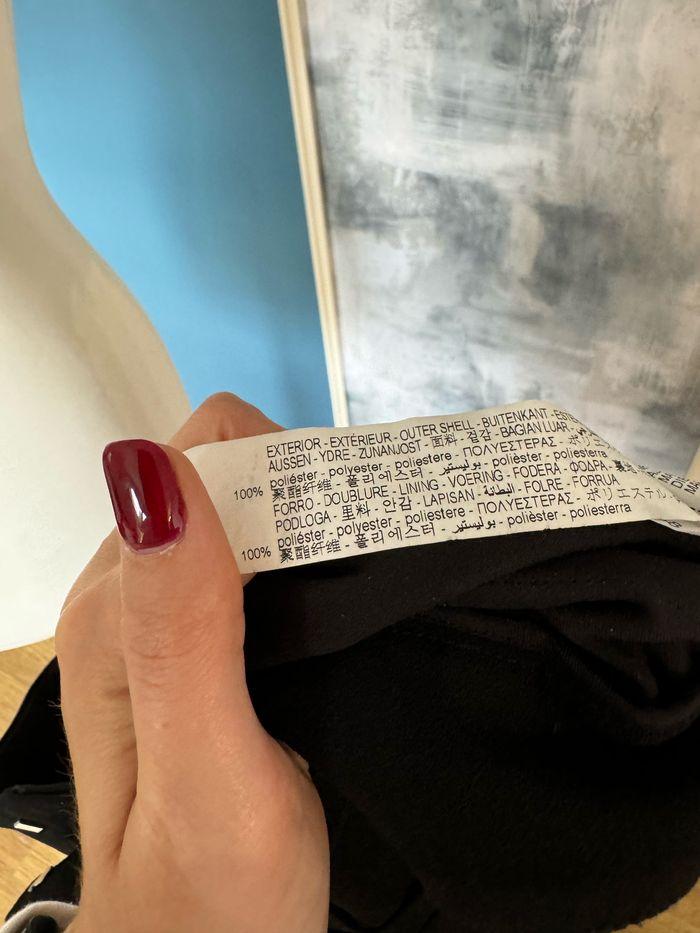 EXTERIOR - EXTÉRIEUR - OUTER SHELL - BUITENKANT -
AUSSEN - YDRE - ZUNANJOST - 面料 - 겉감 - BAGIAN LUAR -
100% poliéster - polyester - poliestere - ΠΟΛΥΕΣΤΕΡΑΣ - ポリ
聚酯纤维 - 폴리에스터 - بوليستير - polièster - poliesterra
FORRO - DOUBLURE - LINING - VOERING - FODERA - ΦΟΔΡΑ -
PODLOGA - 里料 - 안감 - LAPISAN - البطانة - FOLRE - FORRUA
poliéster - polyester - poliestere - ΠΟΛΥΕΣΤΕΡΑΣ - ポリエステル
100% 聚酯纤维 - 폴리에스터 - بوليستير - polièster - poliesterra